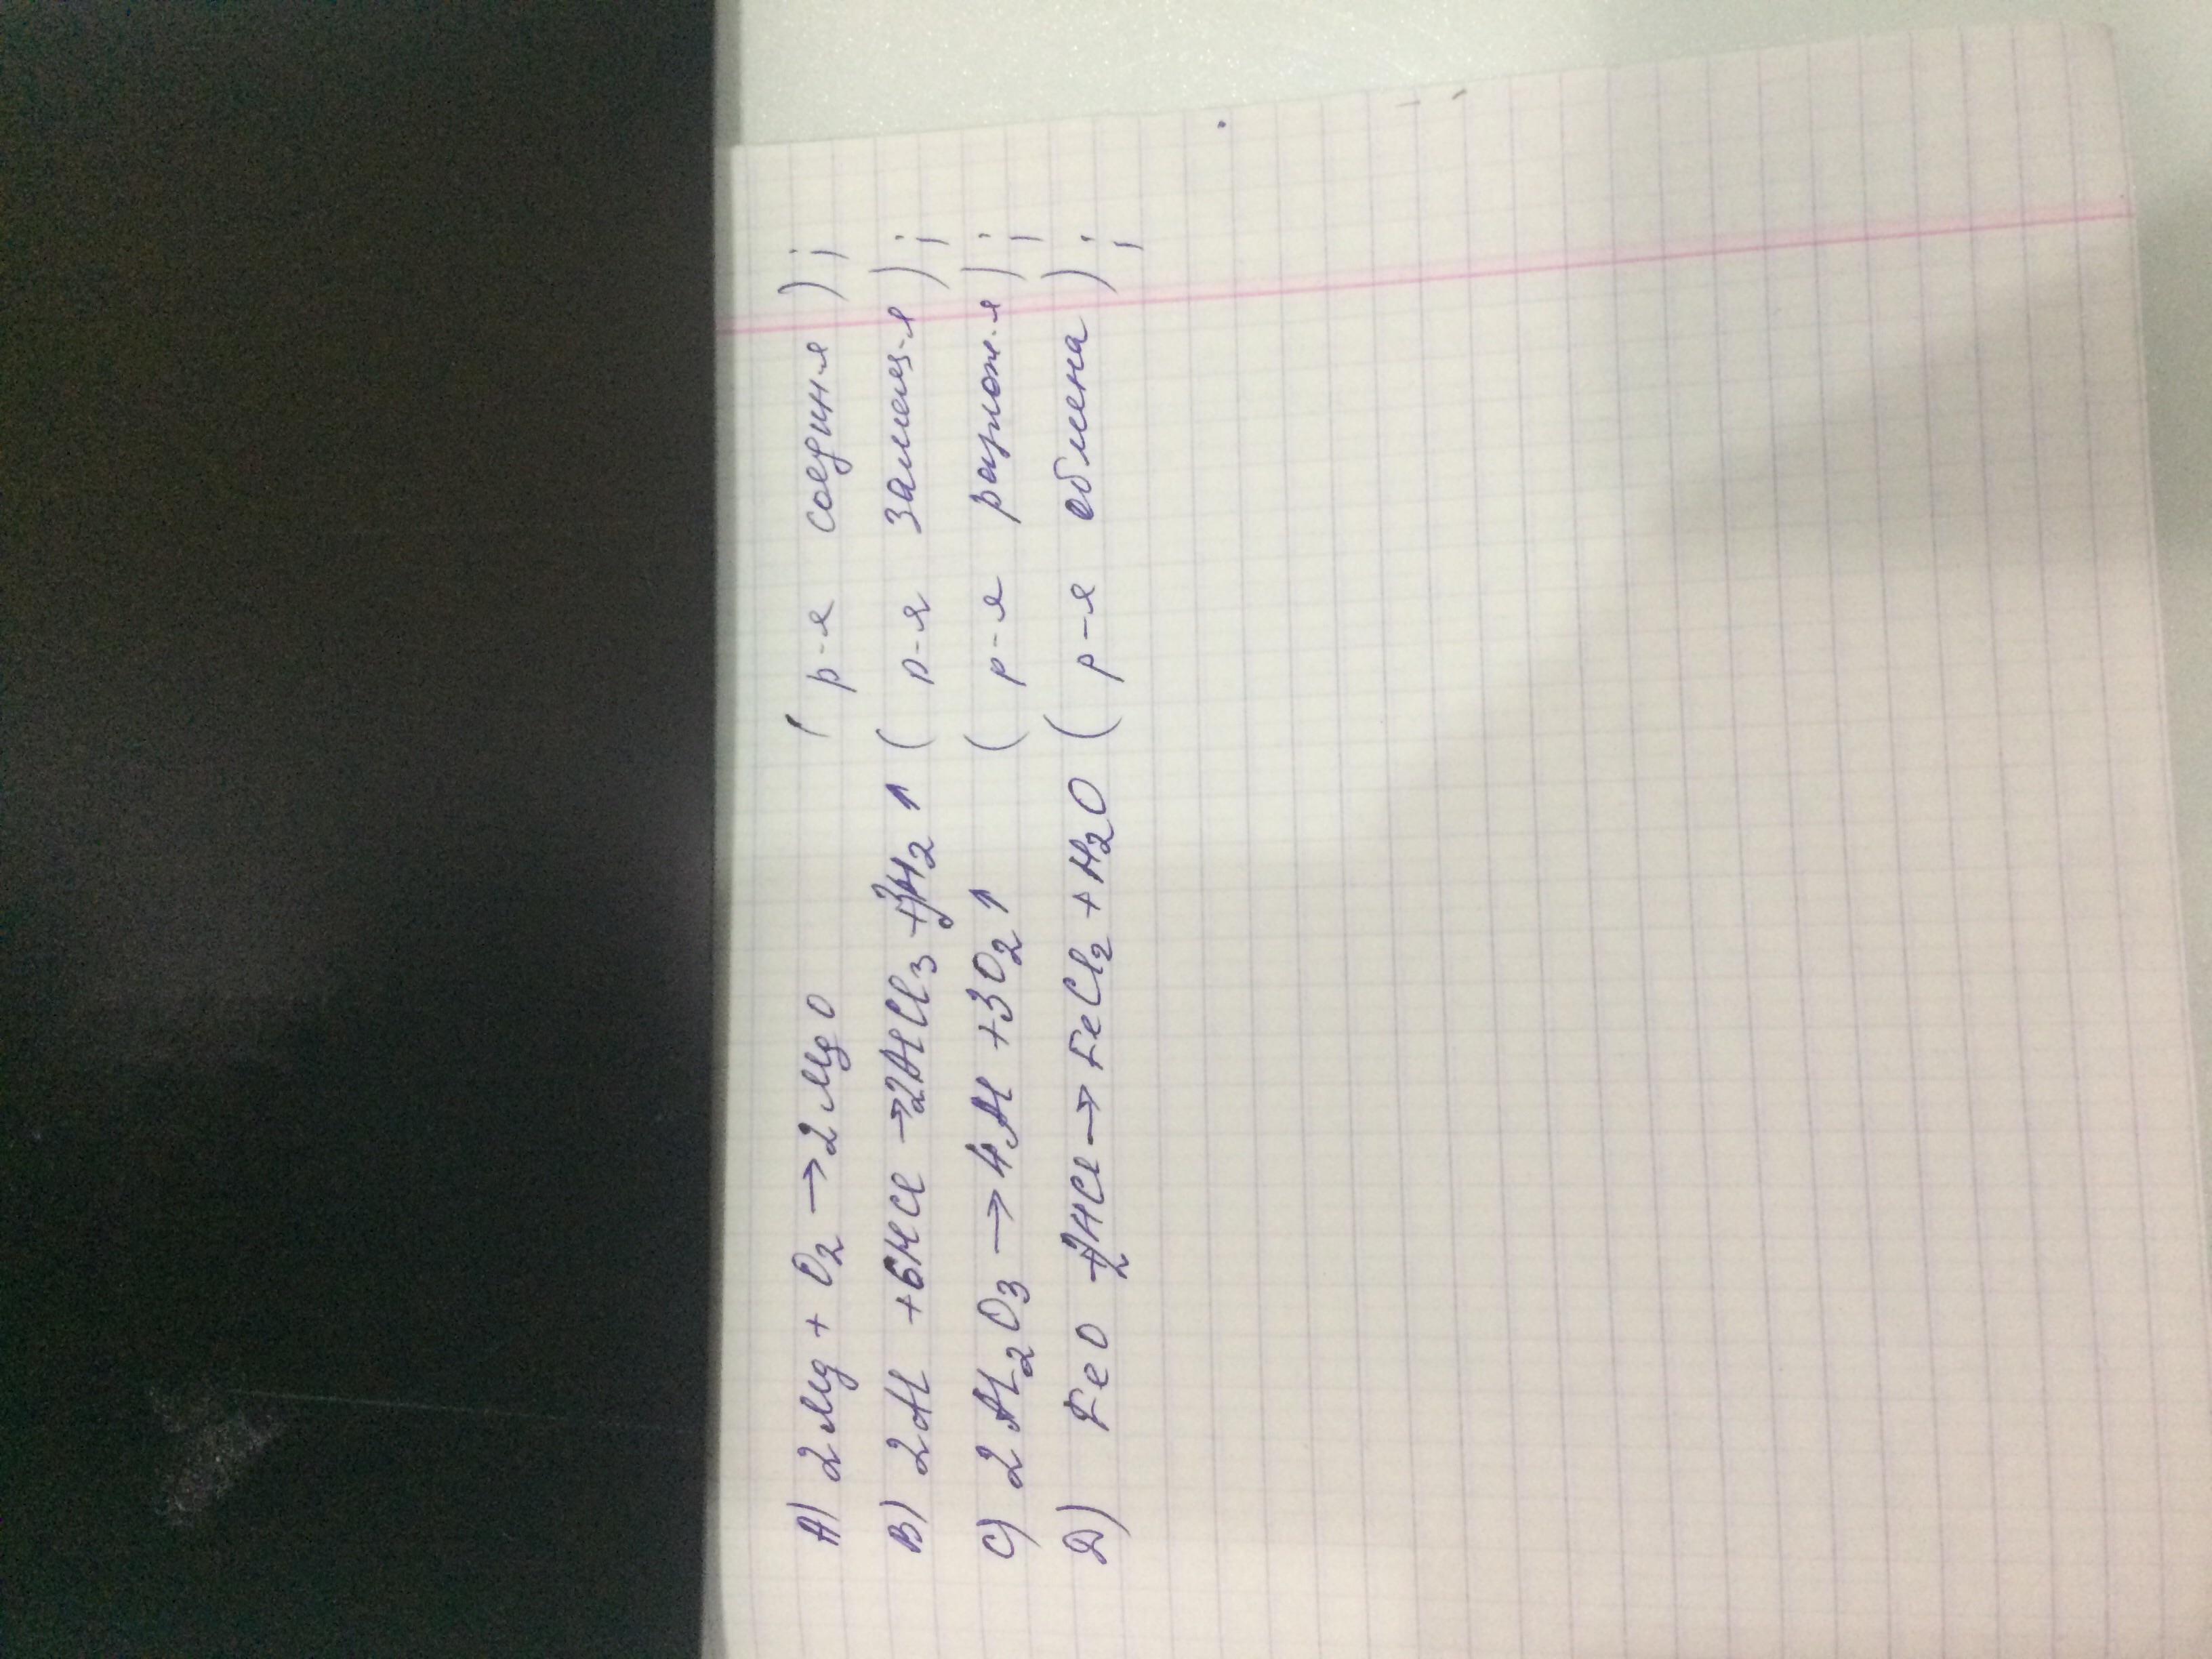 A) 2Mg + O₂ → 2MgO ( р-я соедин-я );
B) 2Al + 6HCl → 2AlCl₃ + 3H₂ ↑ ( р-я замещ-я );
C) 2Al₂O₃ → 4Al + 3O₂ ↑ ( р-я разлож-я );
D) FeO + 2HCl → FeCl₂ + H₂O ( р-я обмена );